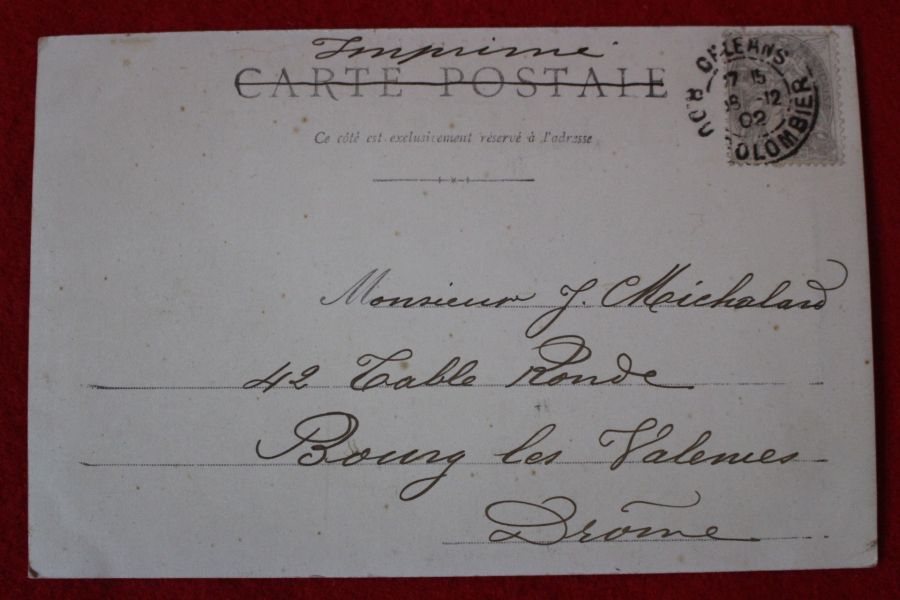 Imprimé
CARTE POSTALE
Ce côté est exclusivement réservé à l'adresse
ORLEANS
17 15
-12
02
COLOMBIER
Monsieur J. Michalard
42 Table Ronde
Bourg les Valences
Drôme